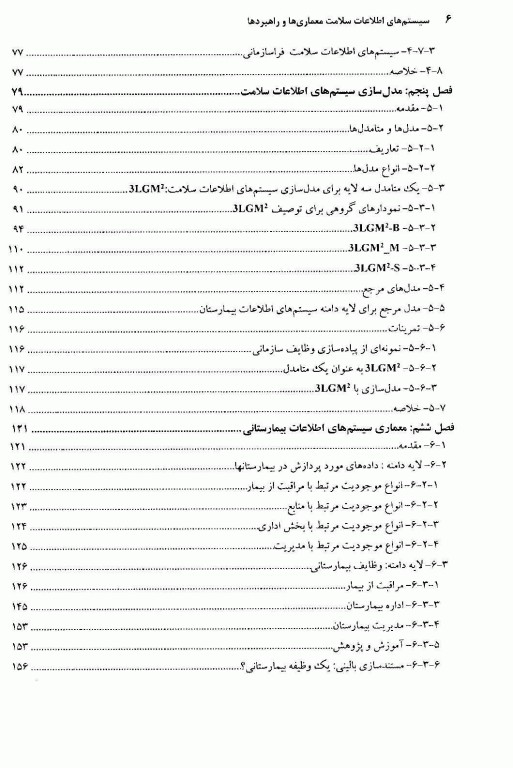 ۶ سیستم‌های اطلاعات سلامت معماری‌ها و راهبردها
۴-۷-۳- سیستم‌های اطلاعات سلامت فراسازمانی ۷۷
۴-۸- خلاصه ۷۷
فصل پنجم: مدل‌سازی سیستم‌های اطلاعات سلامت ۷۹
۵-۱- مقدمه ۷۹
۵-۲- مدل‌ها و متامدل‌ها ۸۰
۵-۲-۱- تعاریف ۸۰
۵-۲-۲- انواع مدل‌ها ۸۲
۵-۳- یک متامدل سه لایه برای مدل‌سازی سیستم‌های اطلاعات سلامت: 3LGM² ۹۰
۵-۳-۱- نمودارهای گروهی برای توصیف 3LGM² ۹۱
۵-۳-۲- 3LGM²-B ۹۴
۵-۳-۳- 3LGM²_M ۱۱۰
۵-۳-۴- 3LGM²-S ۱۱۲
۵-۴- مدل‌های مرجع ۱۱۲
۵-۵- مدل مرجع برای لایه دامنه سیستم‌های اطلاعات بیمارستان ۱۱۵
۵-۶- تمرینات ۱۱۶
۵-۶-۱- نمونه‌ای از پیاده‌سازی وظایف سازمانی ۱۱۶
۵-۶-۲- 3LGM² به عنوان یک متامدل ۱۱۷
۵-۶-۳- مدل‌سازی با 3LGM² ۱۱۷
۵-۷- خلاصه ۱۱۸
فصل ششم: معماری سیستم‌های اطلاعات بیمارستانی ۱۲۱
۶-۱- مقدمه ۱۲۱
۶-۲- لایه دامنه : داده‌های مورد پردازش در بیمارستانها ۱۲۲
۶-۲-۱- انواع موجودیت مرتبط با مراقبت از بیمار ۱۲۲
۶-۲-۲- انواع موجودیت مرتبط با منابع ۱۲۳
۶-۲-۳- انواع موجودیت مرتبط با بخش اداری ۱۲۴
۶-۲-۴- انواع موجودیت مرتبط با مدیریت ۱۲۵
۶-۳- لایه دامنه: وظایف بیمارستانی ۱۲۶
۶-۳-۱- مراقبت از بیمار ۱۲۶
۶-۳-۳- اداره بیمارستان ۱۴۵
۶-۳-۴- مدیریت بیمارستان ۱۵۳
۶-۳-۵- آموزش و پژوهش ۱۵۳
۶-۳-۶- مستندسازی بالینی: یک وظیفه بیمارستانی؟ ۱۵۶